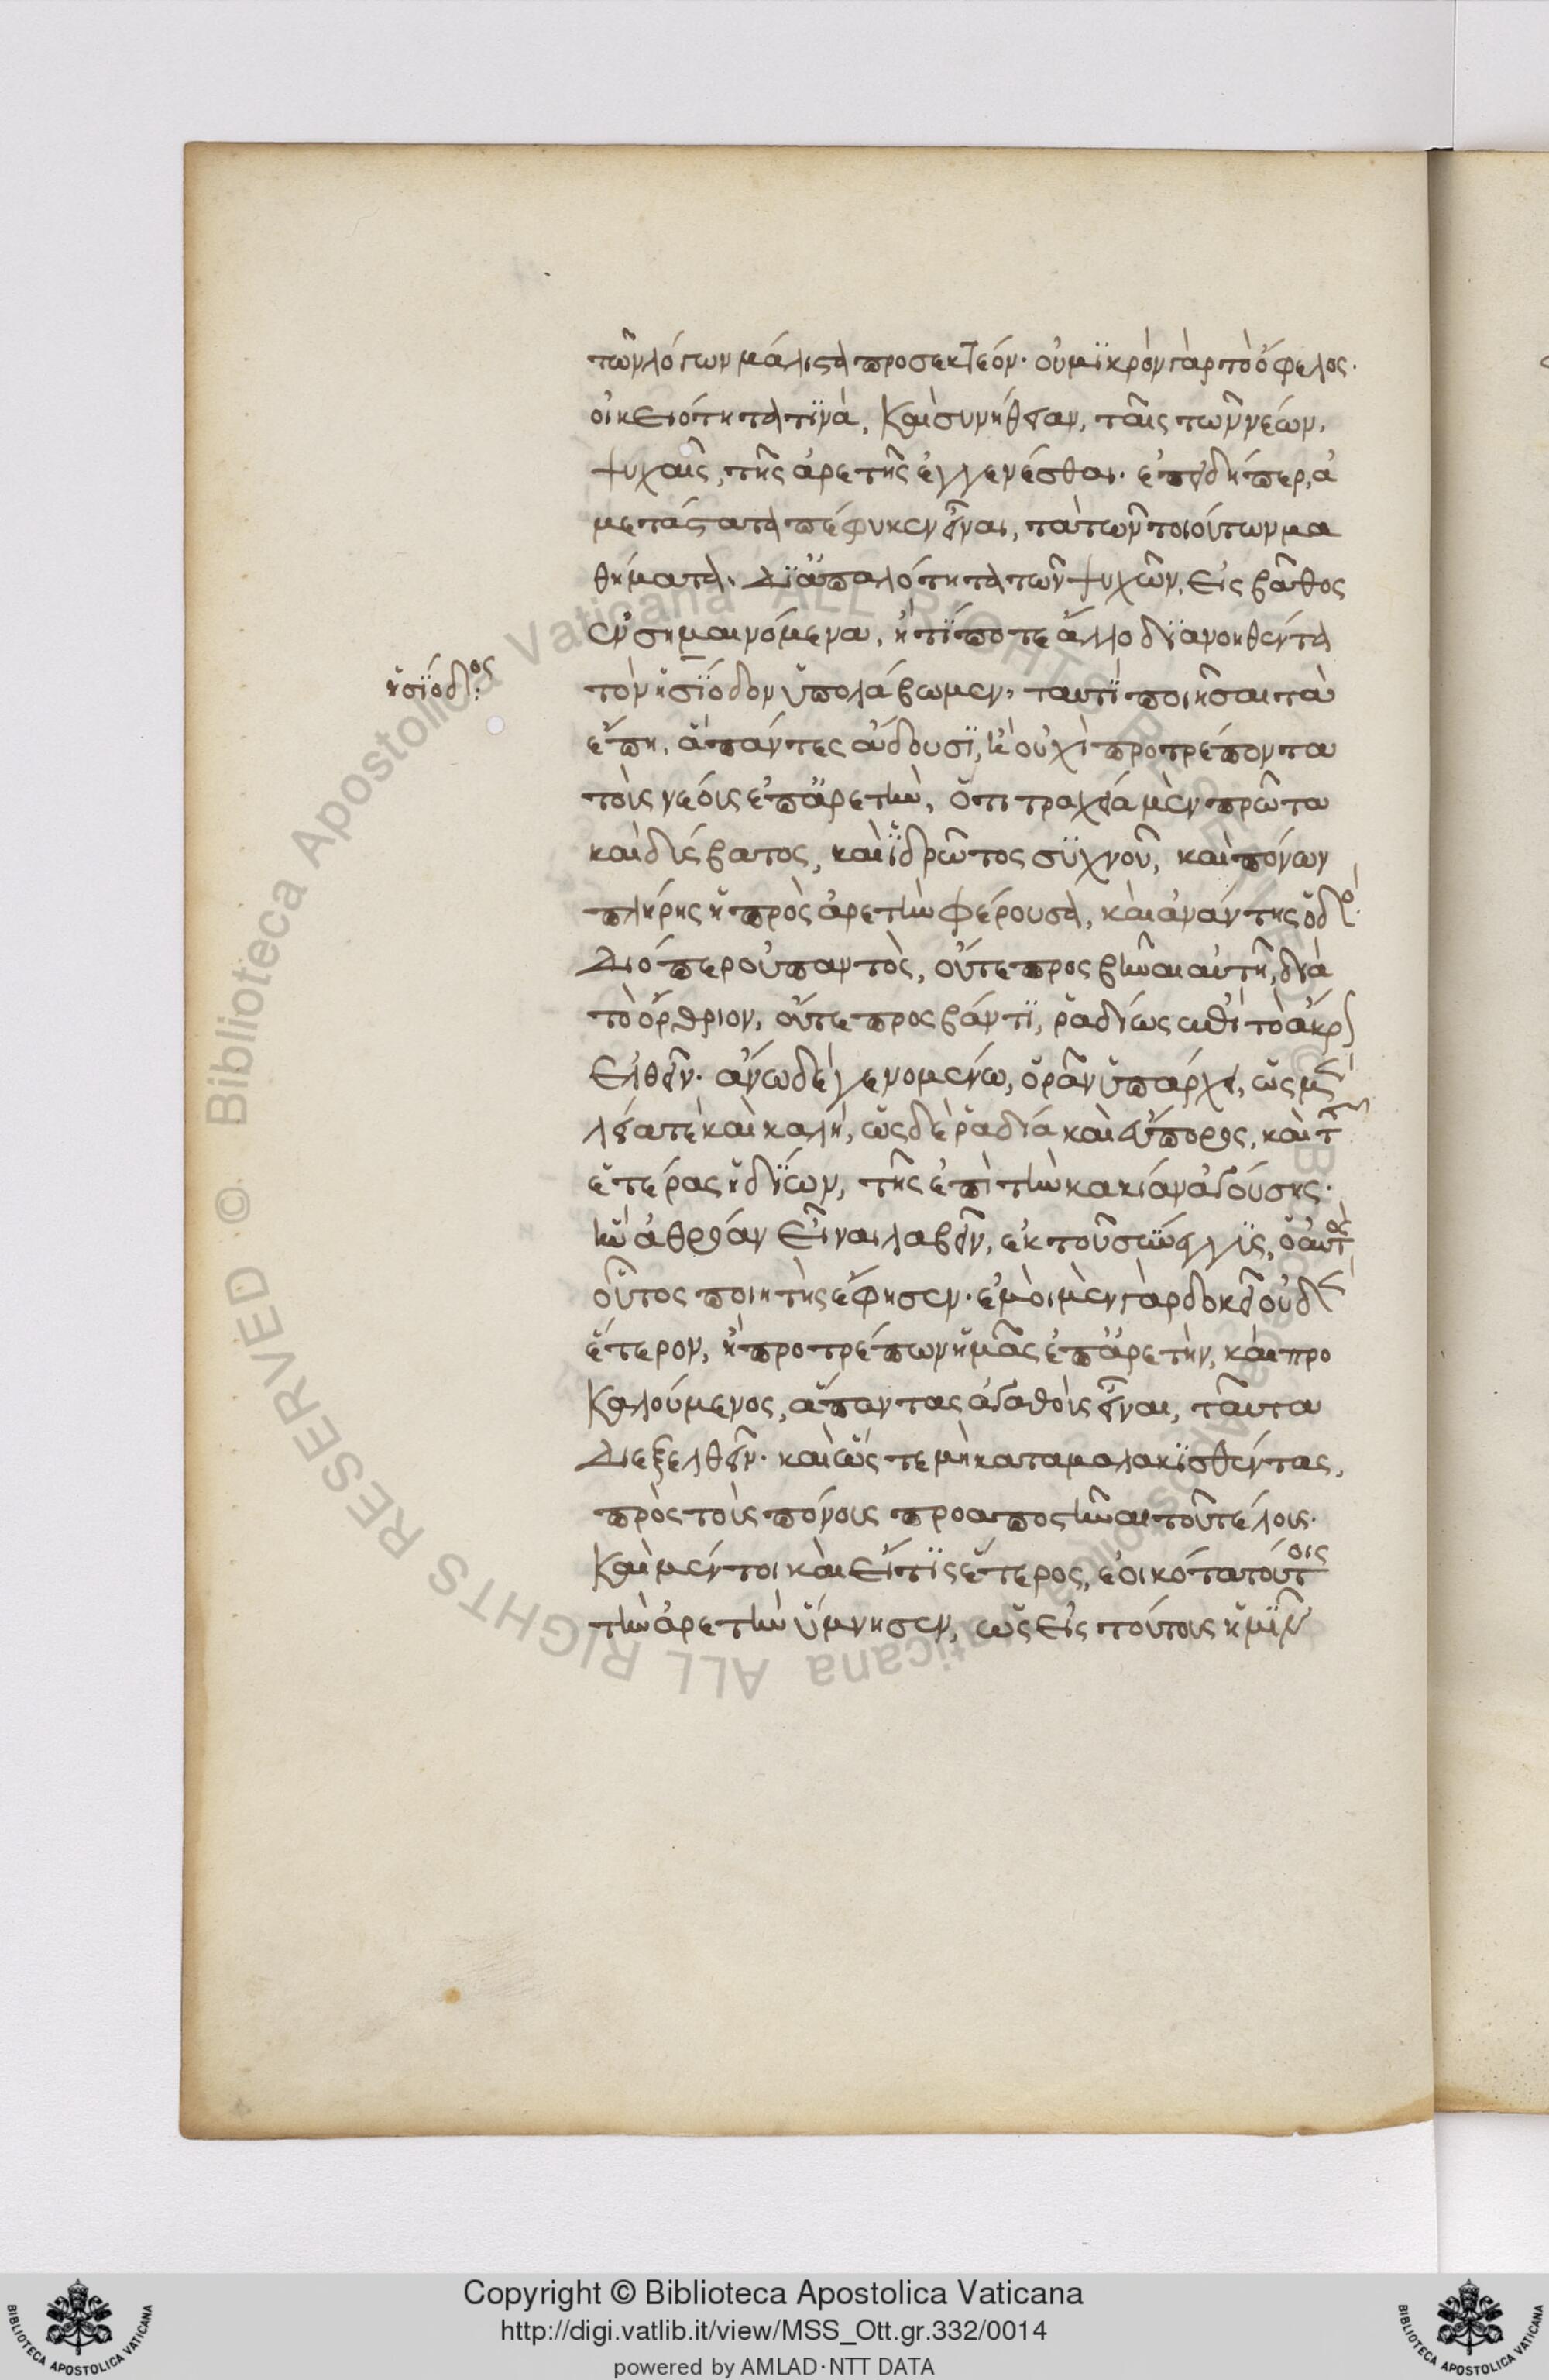 τῶν λόγων μάλιστα προσεκτέον· οὐ μϊκρὸν γὰρ τὸ ὄφελος·
οἰκειότητα τϊνὰ, καὶ συνήθειαν, ταῖς τῶν νέων,
ψυχαῖς, τῆς ἀρετῆς ἐγγενέσθαι· ἐπειδήπερ, ἀ
μετάστατα πέφυκεν εἶναι, τὰ τῶν τοιούτων μα
θήματα· δϊ' ἁπαλότητα τῶν ψυχῶν, εἰς βάθος
ἐνσημαινόμενα, ἢ τί ποτε ἄλλο δϊανοηθέντα
ἡσϊόδος
τὸν ἡσϊόδον ὑπολάβωμεν, ταυτῒ ποιῆσαι τὰ
ἔπη, ἃ πάντες ἄδουσϊ, ἢ οὐχὶ προτρέποντα
τοὺς νέους ἐπ' ἀρετὴν, ὅτι τραχεῖα μὲν πρῶτα
καὶ δύσβατος, καὶ ἱδρῶτος συχνοῦ, καὶ πόνων
πλήρης ἡ πρὸς ἀρετὴν φέρουσα, καὶ ἀνάντης ὁδό·
διόπερ οὐ παντὸς, οὔτε προσβῆναι αὐτῆ, διὰ
τὸ ὄρθριον, οὔτε προσβάντϊ, ῥαδίως ἐπὶ τὸ ἄκρ
ἐλθεῖν· ἄνω δὲ γενομένω, ὁρᾶν ὑπάρχει, ὡς μὲ
λεῖά τε καὶ καλὴ, ὡς δὲ ῥαδία καὶ εὔπορος, καὶ τ
ἑτέρας ἡδίων, τῆς ἐπὶ τὴν κακίαν ἀγούσης·
ἣν ἀθρόαν εἶναι λαβεῖν, ἐκ τοῦ σύνεγγϋς, ὁ αὐτὸς
οὗτος ποιητὴς ἔφησεν· ἐμοὶ μὲν γὰρ δοκεῖ οὐδὲ
ἕτερον, ἢ προτρέπων ἡμᾶς ἐπ' ἀρετὴν, καὶ προ
καλούμενος, ἅπαντας ἀγαθοὺς εἶναι, ταῦτα
διεξελθεῖν· καὶ ὥστε μὴ καταμαλακϊσθέντας,
πρὸς τοὺς πόνους προαποστῆναι τοῦ τέλους·
καὶ μέντοι καὶ εἴ τϊς ἕτερος, ἐοικότα τούτοις
τὴν ἀρετὴν ὕμνησεν, ὡς εἰς τούτοις ἡμῖν
Copyright © Biblioteca Apostolica Vaticana
http://digi.vatlib.it/view/MSS_Ott.gr.332/0014
powered by AMLAD·NTT DATA